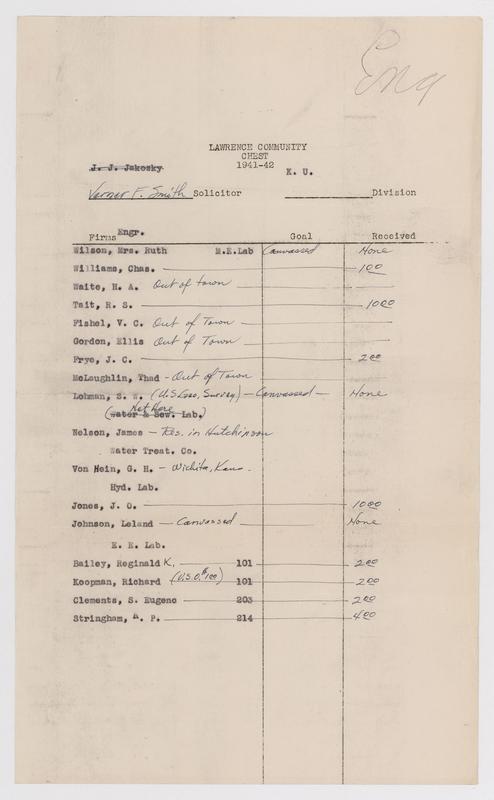 Eng
LAWRENCE COMMUNITY
CHEST
1941-42
J. J. Jakosky
K. U.
Verner F. Smith Solicitor Division
Firms Engr. Goal Received
Wilson, Mrs. Ruth M.E.Lab Canvassed None
Williams, Chas. 1 00
Waite, H. A. Out of town
Tait, R. S. 10 00
Fishel, V. C. Out of Town
Gordon, Ellis Out of Town
Frye, J. C. 2 00
McLaughlin, Thad - Out of Town
Lohman, S. W. (U.S. Geo. Survey) - Canvassed - None
Not Here
(Water & Sew. Lab.)
Nelson, James - Res. in Hutchinson
Water Treat. Co.
Von Hein, G. H. - Wichita, Kans.
Hyd. Lab.
Jones, J. O. 10 00
Johnson, Leland - Canvassed None
E. E. Lab.
Bailey, Reginald K. 101 2 00
Koopman, Richard (U.S.O. $1 00) 101 2 00
Clements, S. Eugene 203 2 00
Stringham, R. P. 214 4 00